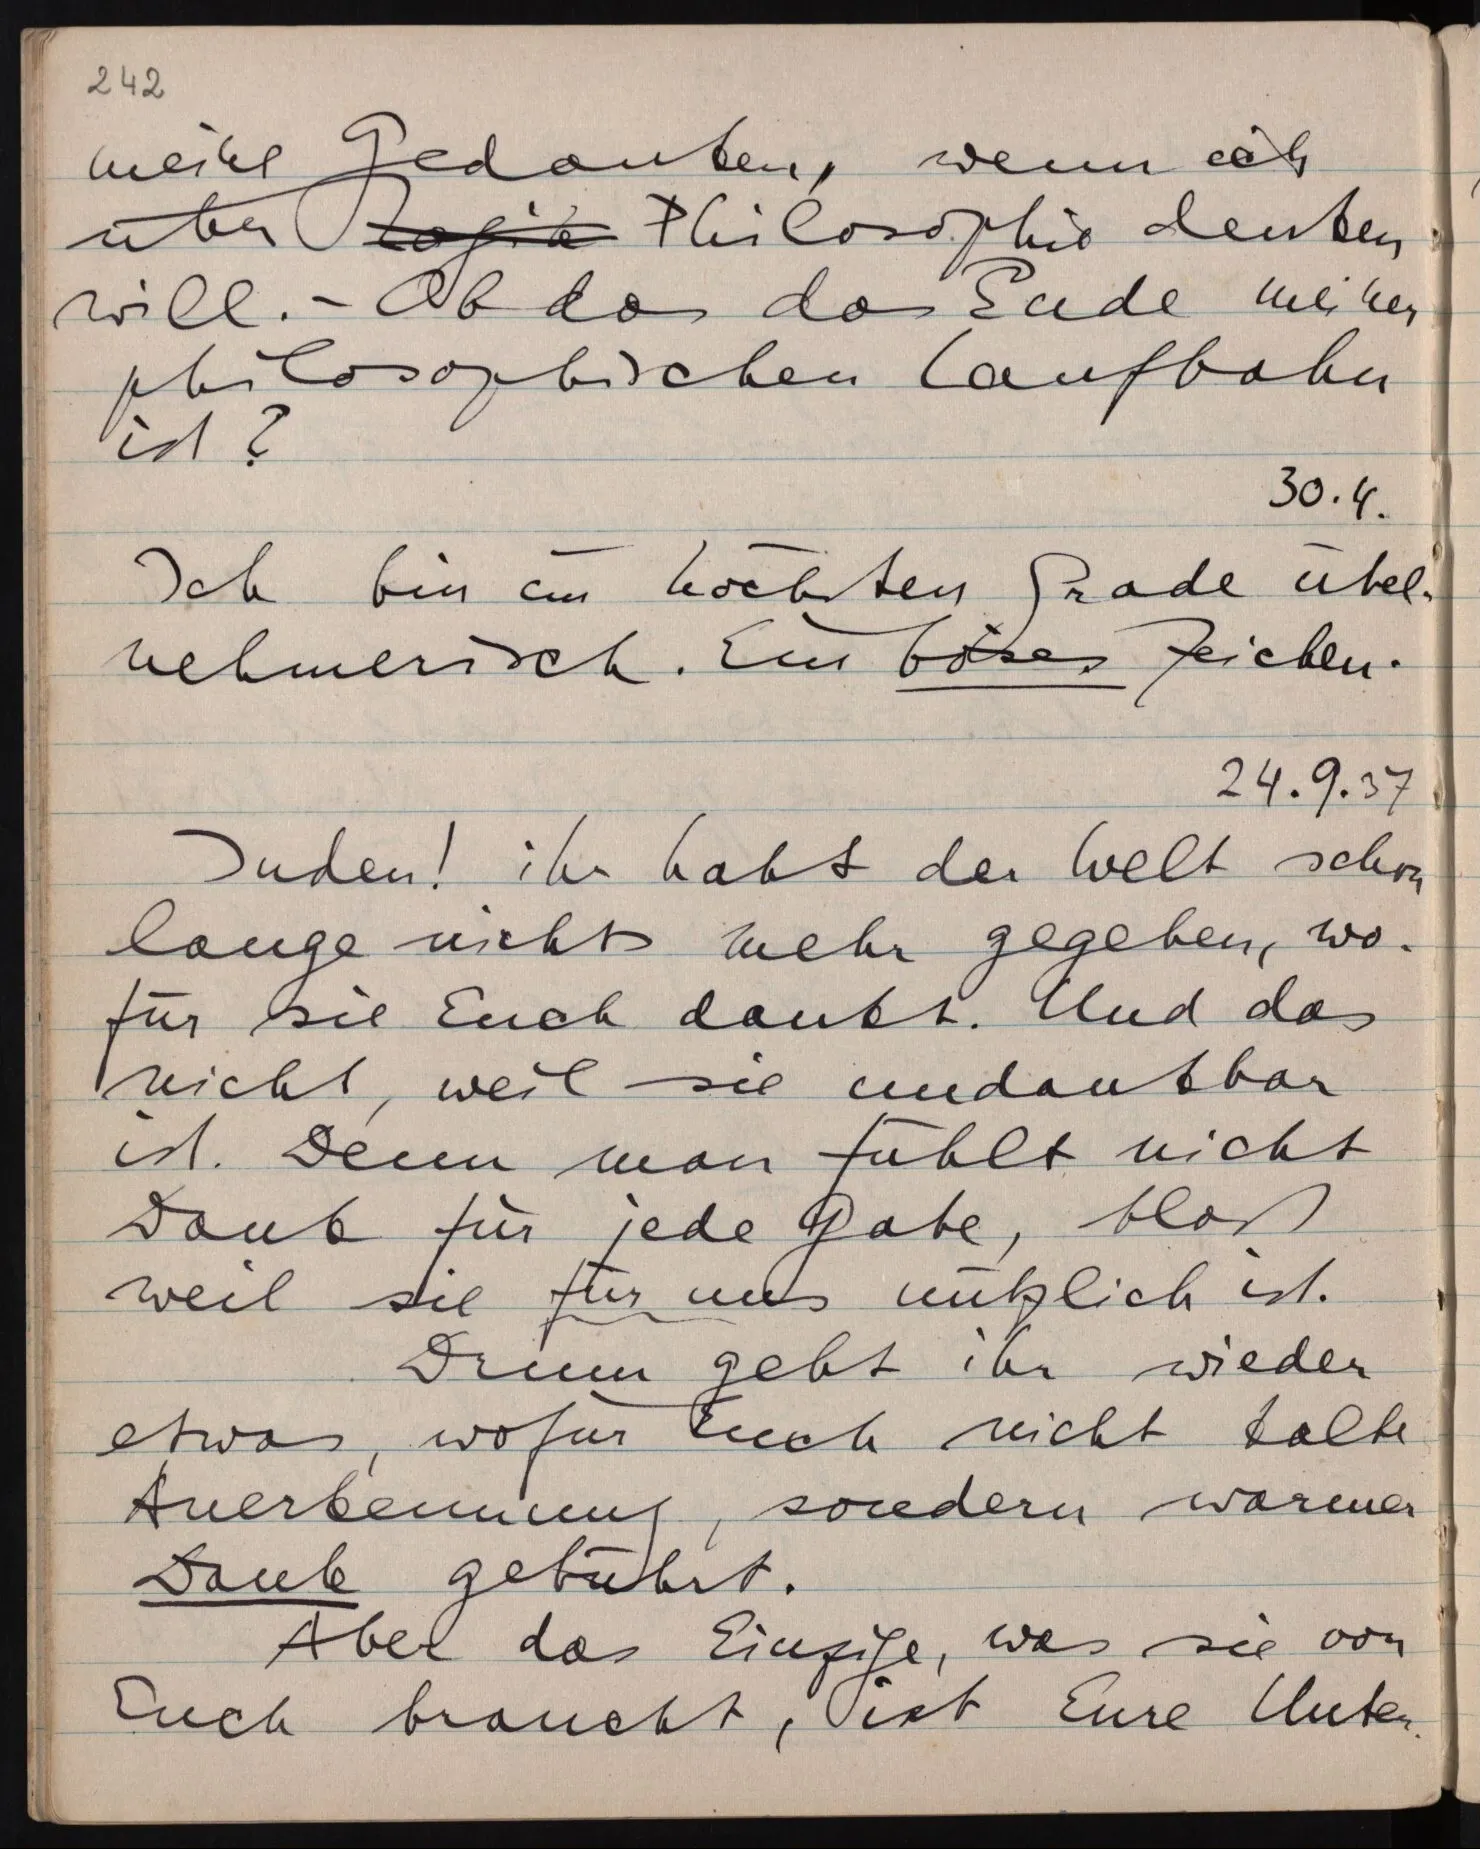 242
meine Gedanken, wenn ich
über Logik Philosophie denken
will. – Ob das das Ende meiner
philosophischen Laufbahn
ist?
30.4.
Ich bin im höchsten Grade übel-
nehmerisch. Ein böses Zeichen.
24.9.37
Juden! ihr habt der Welt schon
lange nichts mehr gegeben, wo-
für sie Euch dankt. Und das
nicht, weil sie undankbar
ist. Denn man fühlt nicht
Dank für jede Gabe, bloß
weil sie für uns nützlich ist.
Drum gebt ihr wieder
etwas, wofür Euch nicht kalte
Anerkennung, sondern warmer
Dank gebührt.
Aber das Einzige, was sie von
Euch braucht, ist Eure Unter-